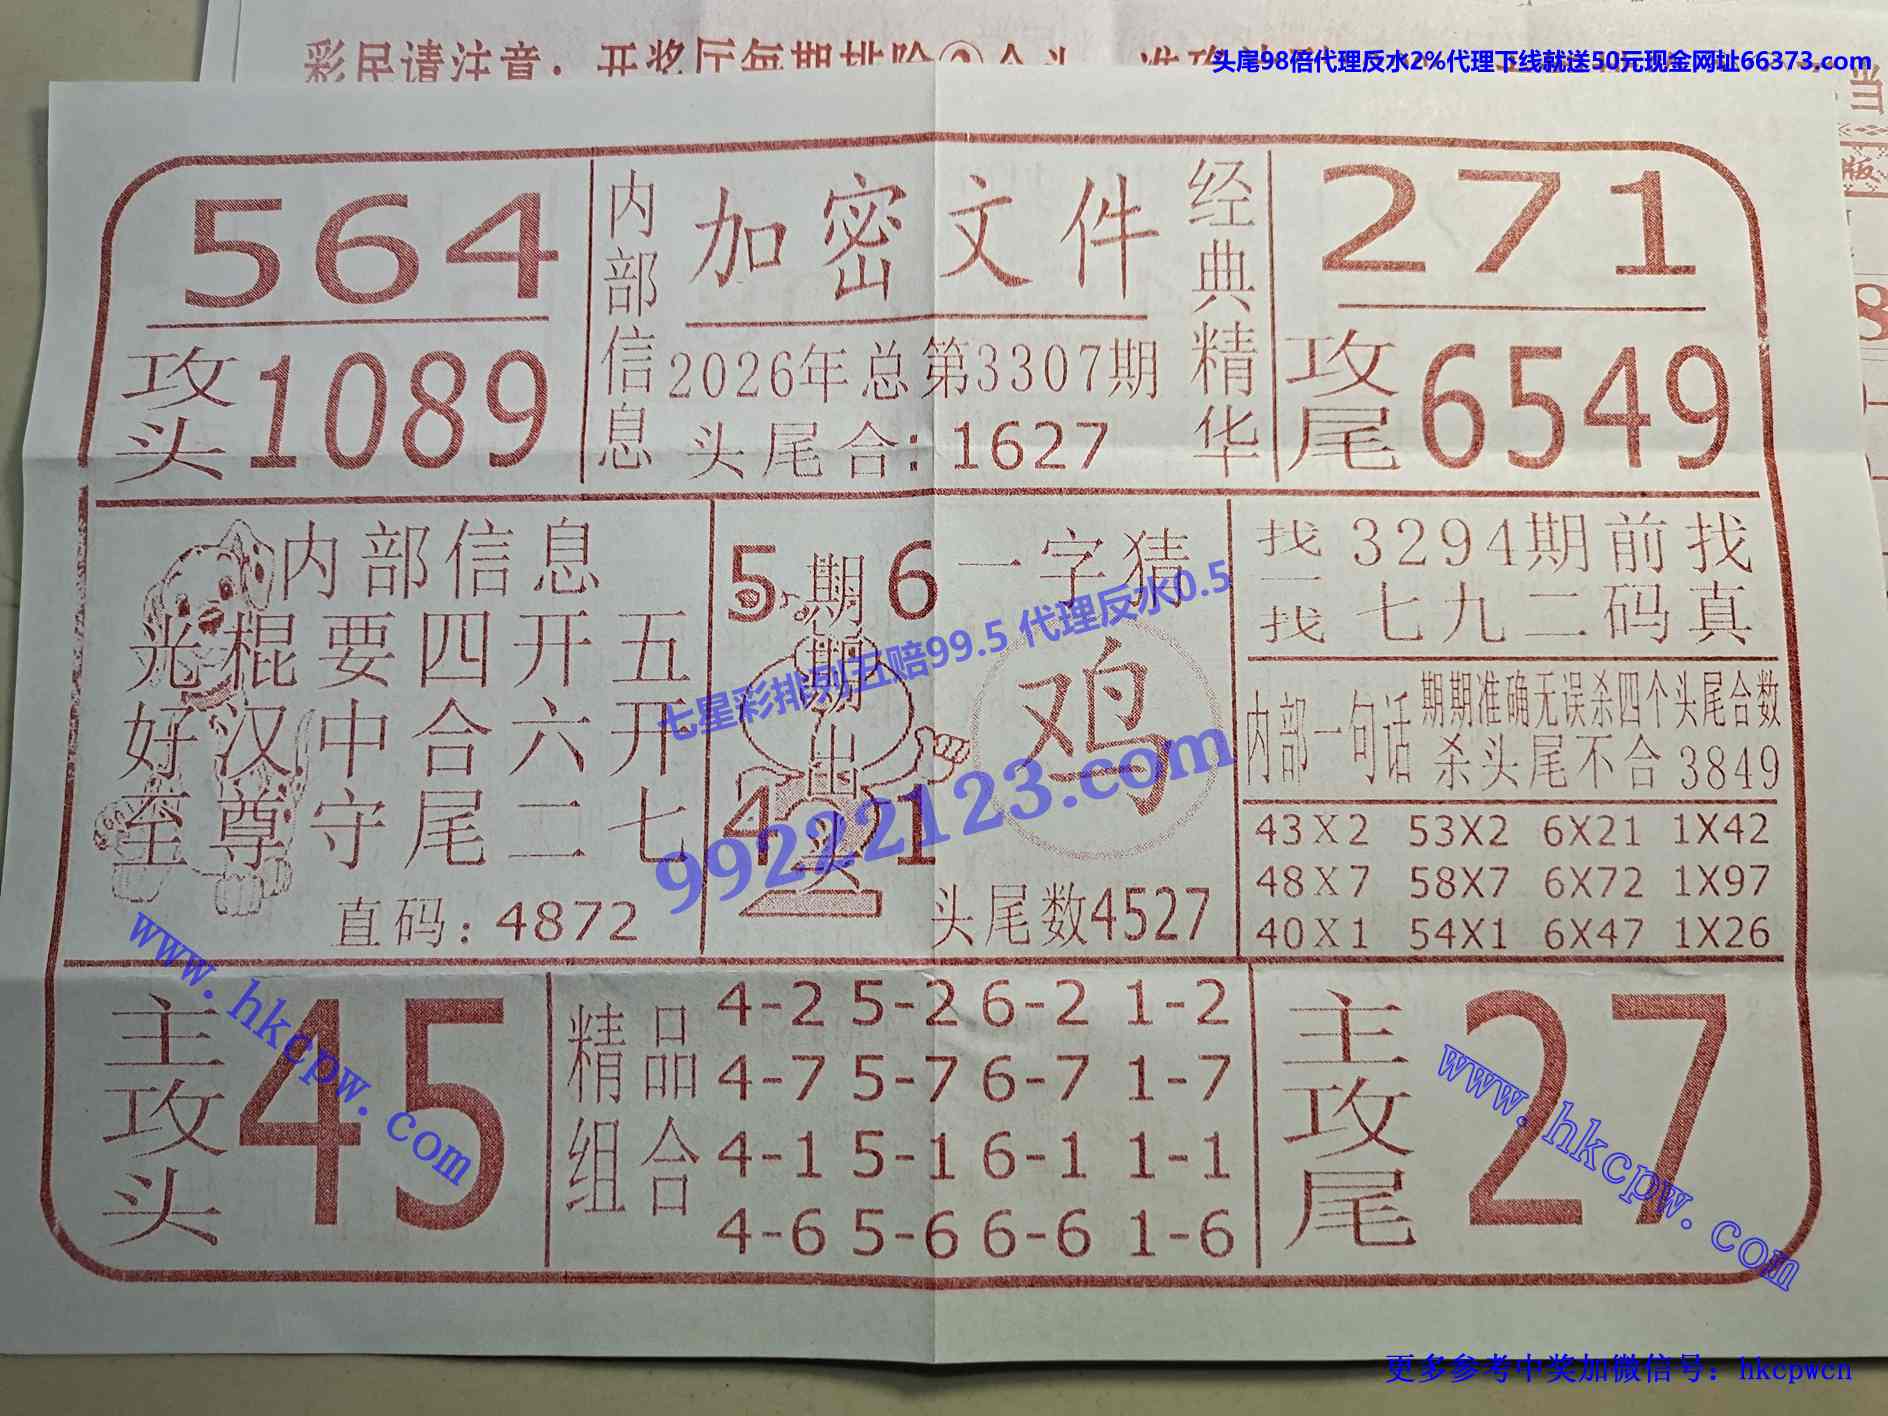 头尾98倍代理反水2%代理下线就送50元现金网址66373.com
彩民请注意：开奖厅每期排除②个头
当
版
564
攻头1089
内部信息
加密文件
2026年总第3307期
头尾合：1627
经典精华
271
攻尾6549
内部信息
光棍要四开五
好汉中合六开
至尊守尾二七
直码：4872
5 6
期期出头
4 1
2
一字猜
鸡
头尾数4527
找一找
3294期前找
七九二码真
内部一句话
期期准确无误杀四个头尾合数
杀头尾不合 3849
43X2 53X2 6X21 1X42
48X7 58X7 6X72 1X97
40X1 54X1 6X47 1X26
七星彩排列五赔99.5 代理反水0.5
99222123.com
主攻头
45
精品组合
4-2 5-2 6-2 1-2
4-7 5-7 6-7 1-7
4-1 5-1 6-1 1-1
4-6 5-6 6-6 1-6
主攻尾
27
www.hkcpw.com
www.hkcpw.com
更多参考中奖加微信号：hkcpwcn